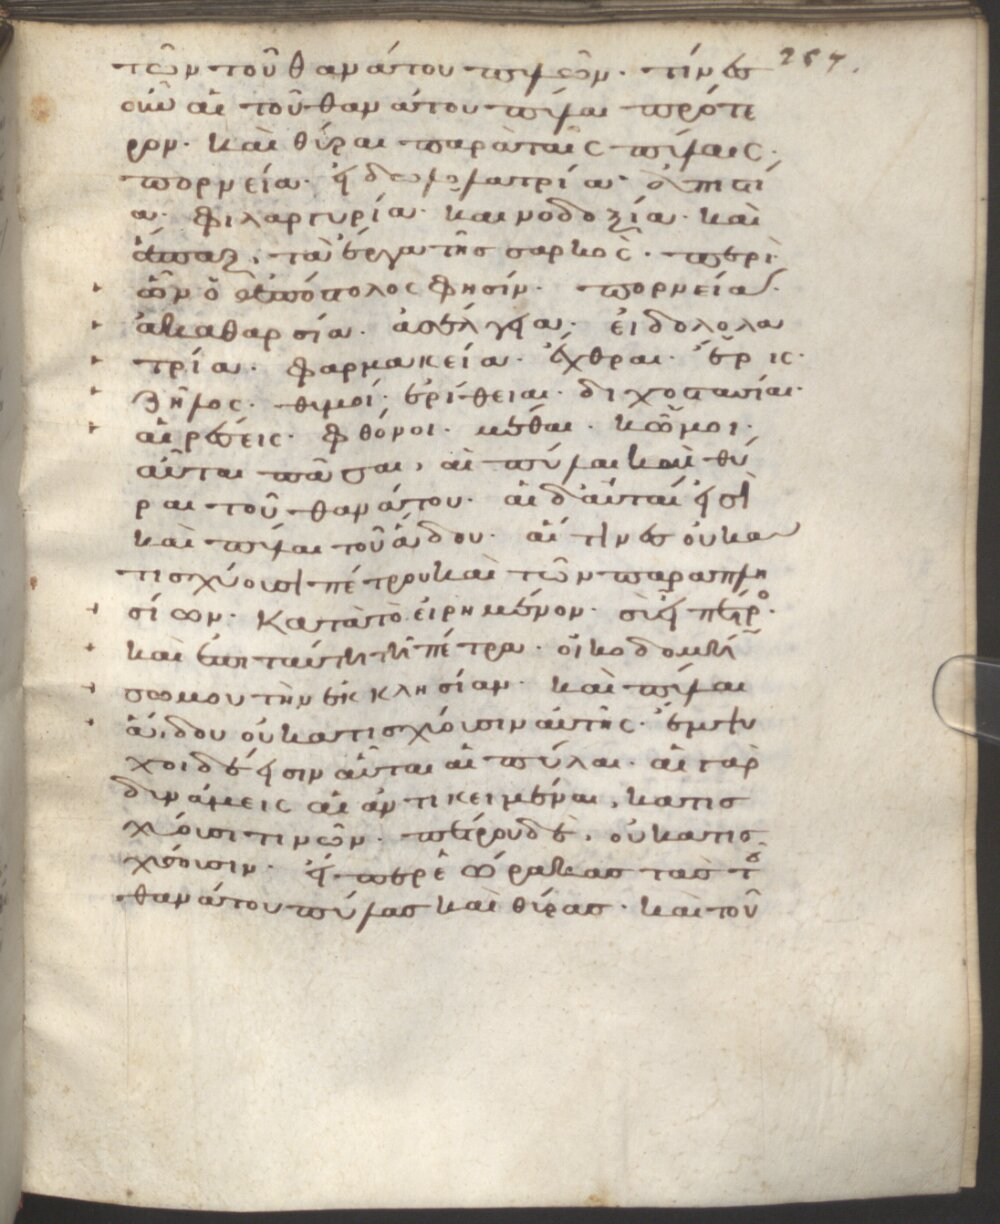 257.
τῶν τοῦ θανάτου πυλῶν· τίνες
οὖν αἱ τοῦ θανάτου πύλαι πρότε
ρον· καὶ θύραι παρὰ ταῖς πύλαις·
πορνεία· εἰδωλολατρία· ἀπιστί
α· φιλαργυρία· καινοδοξία· καὶ
ἅπαξ, τὰ ἔργα τῆς σαρκὸς· περὶ
ὧν ὁ ἀπόστολος φησίν· πορνεία·
ἀκαθαρσία· ἀσέλγεια· εἰδολολα
τρία· φαρμακεία· ἔχθραι· ἔρις·
ζῆλος· θυμοί· ἐρίθειαι· διχοστασίαι·
αἱρέσεις· φθόνοι· μέθαι· κῶμοι·
αὗται πᾶσαι, αἱ πύλαι καὶ θύ
ραι τοῦ θανάτου· αἱ δ' αὐταί εἰσι
καὶ πύλαι τοῦ ἅδου· αἵ τινες οὐ κα
τισχύουσι πέτρου καὶ τῶν παραπλη
σίων· κατὰ τὸ εἰρημένον· σὺ εἶ πέτρος·
καὶ ἐπὶ ταύτῃ τῇ πέτρα· οἰκοδομή
σω μου τὴν ἐκκλησίαν· καὶ πύλαι
ἅδου οὐ κατισχύουσιν αὐτῆς· ἔμψυ
χοι δέ εἰσιν αὗται αἱ πύλαι· αἱ γὰρ
δυνάμεις αἱ ἀντικείμεναι, κατισ
χύουσι τινῶν· πέτρου δὲ, οὐ κατισ
χύουσιν· εἶπερ ἑώρακας τὰς τοῦ
θανάτου πύλας καὶ θύρας· καὶ τοῦ